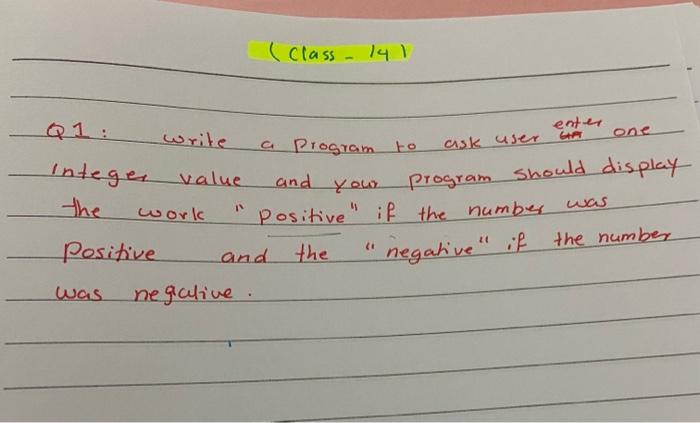 (Class - 14)
Q1: write a program to ask user enter one
integer value and your program should display
the work "positive" if the number was
positive and the "negative" if the number
was negative.